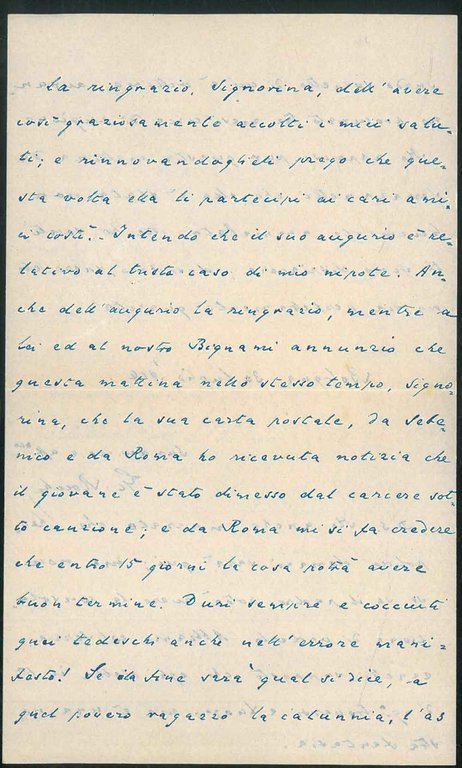 La ringrazio, Signorina, dell'avere
così graziosamente accolti i miei salu-
ti; e rinnovandoglieli prego che que-
sta volta ella li partecipi ai cari ami-
ci costì. Intendo che il suo augurio è re-
lativo al tristo caso di mio nipote. An-
che dell'augurio la ringrazio, mentre a
lei ed al nostro Bignami annunzio che
questa mattina nello stesso tempo, Signo-
rina, che la sua carta postale, da Sebe-
nico e da Roma ho ricevuta notizia che
il giovane è stato dimesso dal carcere sot-
to cauzione; e da Roma mi si fa credere
che entro 15 giorni la cosa potrà avere
buon termine. Duri sempre e cocciuti
quei tedeschi anche nell'errore mani-
festo! Se la fine sarà qual si dice, a
quel povero ragazzo la calunnia, l'as